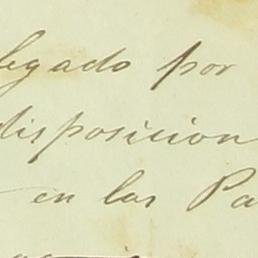 legado por
disposicion
en las Pa